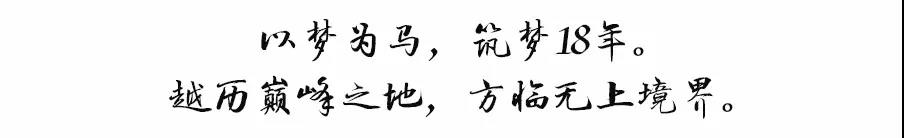 以梦为马，筑梦18年。
越历巅峰之地，方临无上境界。